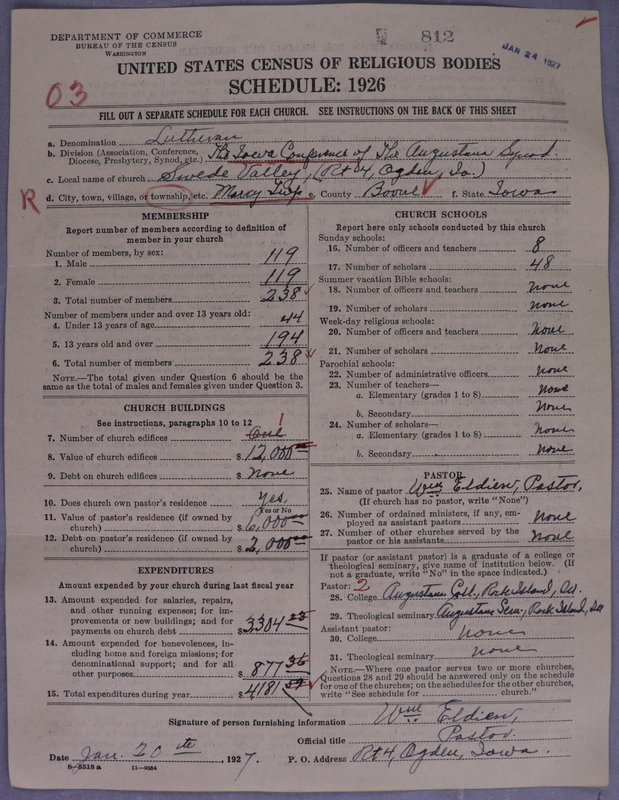 DEPARTMENT OF COMMERCE
BUREAU OF THE CENSUS
WASHINGTON
812
JAN 24 1927
UNITED STATES CENSUS OF RELIGIOUS BODIES
SCHEDULE: 1926
03
FILL OUT A SEPARATE SCHEDULE FOR EACH CHURCH. SEE INSTRUCTIONS ON THE BACK OF THIS SHEET
a. Denomination Lutheran
b. Division (Association, Conference, Diocese, Presbytery, Synod, etc.) The Iowa Conference of The Augustana Synod.
c. Local name of church Swede Valley, (Rt 4, Ogden, Ia.)
R d. City, town, village, or township, etc. Marcy Twp e. County Boone f. State Iowa
MEMBERSHIP
Report number of members according to definition of member in your church
Number of members, by sex:
1. Male 119
2. Female 119
3. Total number of members 238
Number of members under and over 13 years old:
4. Under 13 years of age 44
5. 13 years old and over 194
6. Total number of members 238
NOTE.—The total given under Question 6 should be the same as the total of males and females given under Question 3.
CHURCH BUILDINGS
See instructions, paragraphs 10 to 12
7. Number of church edifices One 1
8. Value of church edifices $ 12,000 00
9. Debt on church edifices $ None
10. Does church own pastor's residence Yes.
Yes or No
11. Value of pastor's residence (if owned by church) $ 6,000 00
12. Debt on pastor's residence (if owned by church) $ 2,000 00
EXPENDITURES
Amount expended by your church during last fiscal year
13. Amount expended for salaries, repairs, and other running expenses; for improvements or new buildings; and for payments on church debt $ 3304 23
14. Amount expended for benevolences, including home and foreign missions; for denominational support; and for all other purposes $ 877 36
15. Total expenditures during year $ 4181 59
CHURCH SCHOOLS
Report here only schools conducted by this church
Sunday schools:
16. Number of officers and teachers 8
17. Number of scholars 48
Summer vacation Bible schools:
18. Number of officers and teachers none
19. Number of scholars none
Week-day religious schools:
20. Number of officers and teachers None
21. Number of scholars None
Parochial schools:
22. Number of administrative officers None
23. Number of teachers—
a. Elementary (grades 1 to 8) None
b. Secondary None
24. Number of scholars—
a. Elementary (grades 1 to 8) None
b. Secondary None
PASTOR
25. Name of pastor Wm Eldien, Pastor,
(If church has no pastor, write "None")
26. Number of ordained ministers, if any, employed as assistant pastors None
27. Number of other churches served by the pastor or his assistants None
If pastor (or assistant pastor) is a graduate of a college or theological seminary, give name of institution below. (If not a graduate, write "No" in the space indicated.)
Pastor: 2
28. College Augustana Coll, Rock Island, Ill.
29. Theological seminary Augustana Sem., Rock Island, Ill
Assistant pastor:
30. College None
31. Theological seminary none
NOTE.—Where one pastor serves two or more churches, Questions 28 and 29 should be answered only on the schedule for one of the churches; on the schedules for the other churches, write "See schedule for church."
Signature of person furnishing information Wm Eldien,
Official title Pastor.
Date Jan. 20th, 1927. P. O. Address Rt 4, Ogden, Iowa.
8—5518 a 11—9064